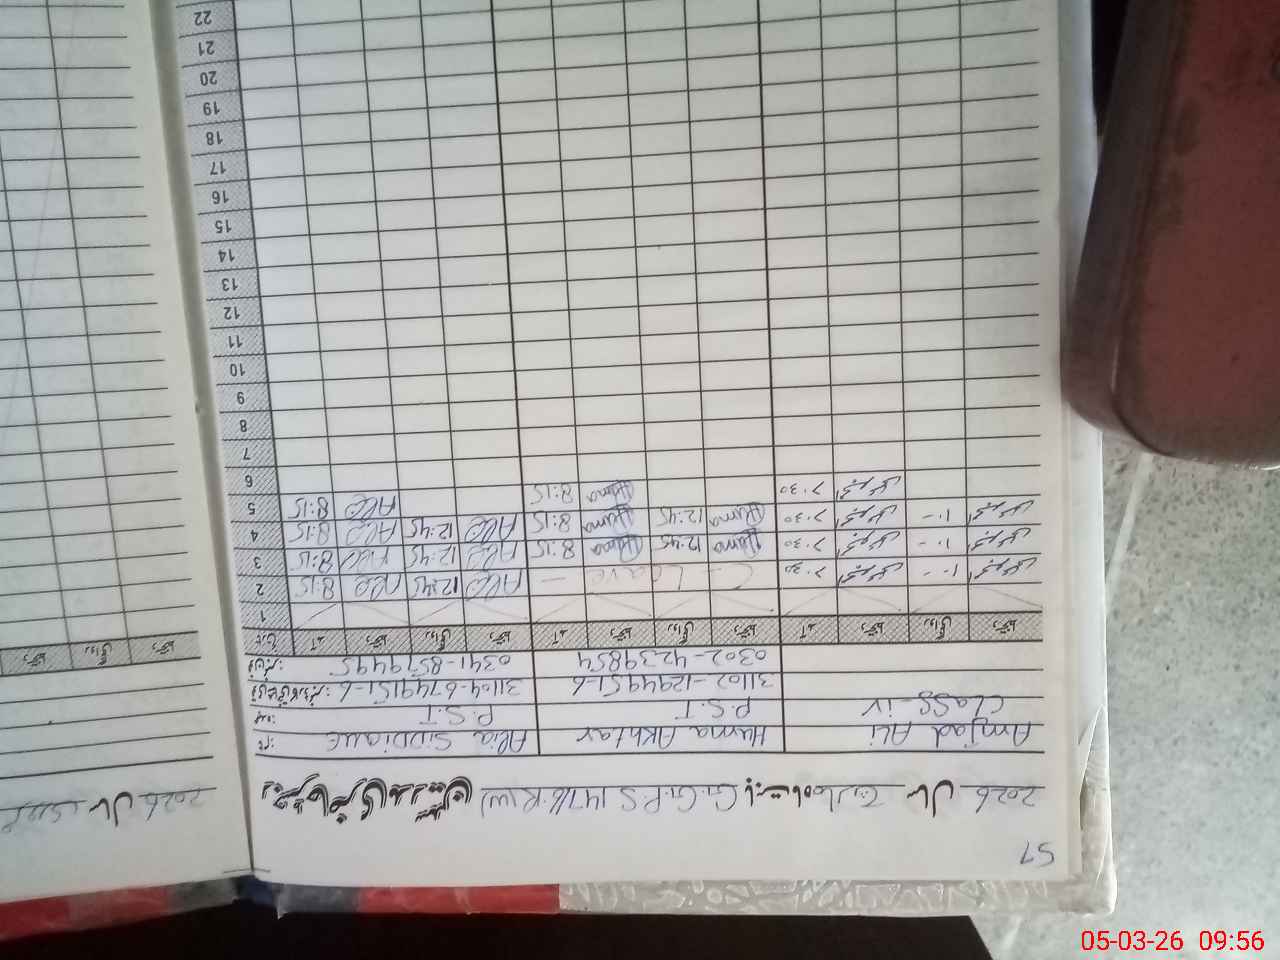 57
رجسٹر حاضری مدرسین G.G.P.S 147/6.R(W) بابت ماہ مارچ سال 2026
سال 2026
نام: Alia Siddique Huma Akhtar Amjad Ali
عہدہ: P.S.T P.S.T Class-iv
31104-6749151-6 31102-1294951-6
فون نمبر: 0341-8579495 0302-4239854
آمد دستخط روانگی دستخط آمد دستخط روانگی دستخط آمد دستخط روانگی دستخط
1
2 8:15 Alia 12:45 Alia C - Leave - 7:30
3 8:15 Alia 12:45 Alia 8:15 Huma 12:45 Huma 7:30
4 8:15 Alia 12:45 Alia 8:15 Huma 12:45 Huma 7:30
5 8:15 Alia 8:15 Huma 7:30
6
7
8
9
10
11
12
13
14
15
16
17
18
19
20
21
22
05-03-26 09:56